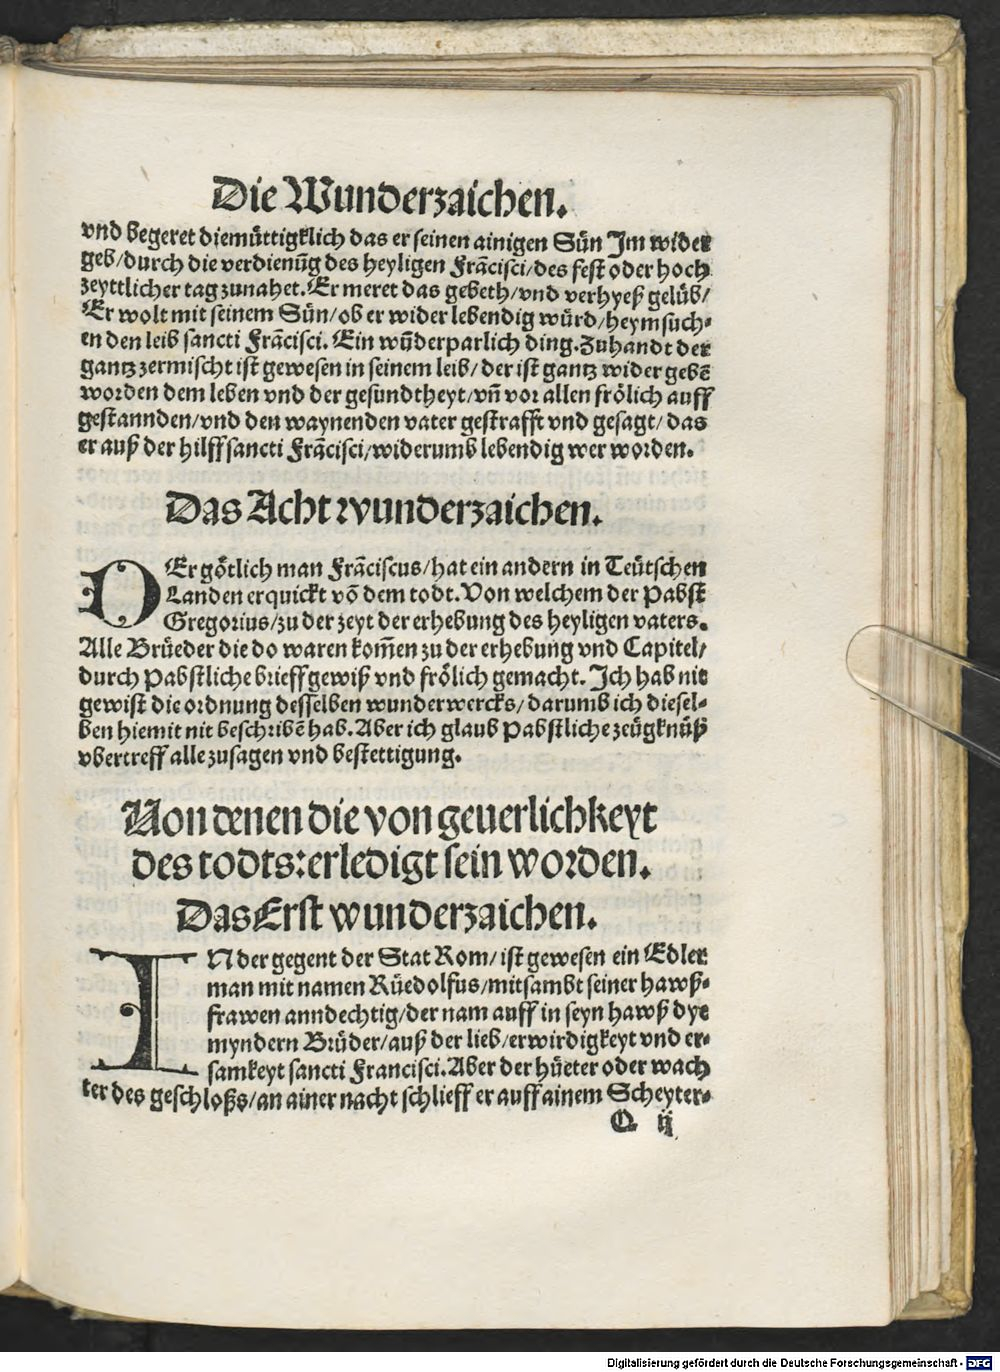 Die Wunderzaichen.
vnd begeret diemüttigklich das er seinen ainigen Sün Jm wider
geb/durch die verdienūg des heyligen Frācisci/des fest oder hoch
zeyttlicher tag zunahet. Er meret das gebeth/vnd verhyeß gelüb/
Er wolt mit seinem Sün/ob er wider lebendig würd/heymsuch-
en den leib sancti Frācisci. Ein wūderparlich ding. Zuhandt der
gantz zermischt ist gewesen in seinem leib/der ist gantz wider gebē
worden dem leben vnd der gesundtheyt/vn̄ vor allen frölich auff
gestannden/vnd den waynenden vater gestrafft vnd gesagt/das
er auß der hilff sancti Frācisci/widerumb lebendig wer worden.
Das Acht wunderzaichen.
DEr götlich man Frāciscus/hat ein andern in Teütschen
Landen erquickt vō dem todt. Von welchem der Pabst
Gregorius/zu der zeyt der erhebung des heyligen vaters.
Alle Brüeder die do waren kom̄en zu der erhebung vnd Capitel/
durch Pabstliche brieff gewiß vnd frölich gemacht. Jch hab nie
gewist die ordnung desselben wunderwercks/darumb ich diesel-
ben hiemit nit beschribē hab. Aber ich glaub Pabstliche zeügknüß
vbertreff alle zusagen vnd bestettigung.
Von denen die von geuerlichkeyt
des todts:erledigt sein worden.
Das Erst wunderzaichen.
IN der gegent der Stat Rom/ist gewesen ein Edler
man mit namen Rüedolfus/mitsambt seiner hawß-
frawen anndechtig/der nam auff in seyn hawß dye
myndern Brüder/auß der lieb/erwirdigkeyt vnd er-
samkeyt sancti Francisci. Aber der hüeter oder wach
ter des geschloßs/an ainer nacht schlieff er auff ainem Scheyter-
Q ij
Digitalisierung gefördert durch die Deutsche Forschungsgemeinschaft - DFG